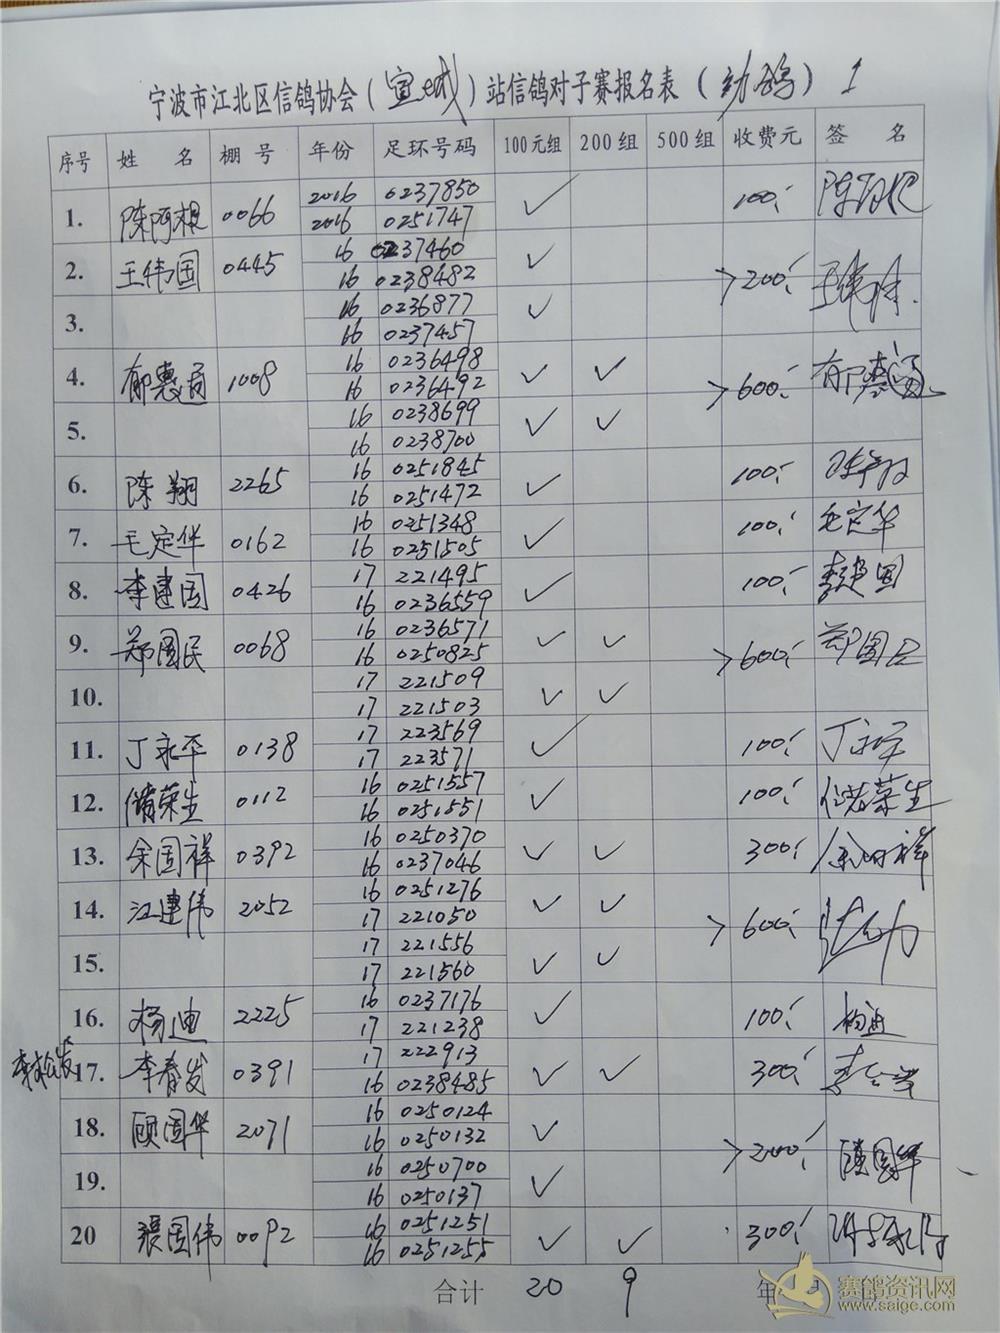 宁波市江北区信鸽协会（宣城）站信鸽对子赛报名表（幼鸽）1
序号 姓 名 棚 号 年份 足环号码 100元组 200组 500组 收费元 签 名
1. 陈阿根 0066 2016 0237850 ✓ 100.-
2016 0251747
2. 王伟国 0445 16 0237460 ✓ >200.-
16 0238482
3. 16 0236877 ✓
16 0237457
4. 郁惠 1008 16 0236498 ✓ ✓ >600.-
16 0236492
5. 16 0238699 ✓ ✓
16 0238700
6. 陈翔 2265 16 0251845 ✓ 100.- 陈翔
16 0251472
7. 毛定华 0162 16 0251348 ✓ 100.- 毛定华
16 0251505
8. 李建国 0426 17 221495 ✓ 100.- 李建国
16 0236559
9. 郑国民 0068 16 0236571 ✓ ✓ >600.- 郑国民
16 0250825
10. 17 221509 ✓ ✓
17 221503
11. 丁永平 0138 17 223569 ✓ 100.- 丁永平
17 223571
12. 储荣生 0112 16 0251557 ✓ 100.- 储荣生
16 0251551
13. 余国祥 0392 16 0250370 ✓ ✓ 300.- 余国祥
16 0237046
14. 江建伟 2052 16 0251276 ✓ ✓ >600.-
17 221050
15. 17 221556 ✓ ✓
17 221560
16. 杨迪 2225 16 0237176 ✓ 100.- 杨迪
17 221238
17. 李春发 0391 17 222913 ✓ ✓ 300.-
16 0238485
18. 顾国华 2071 16 0250124 ✓ >200.- 顾国华
16 0250132
19. 16 0250700 ✓
16 0250137
20 张国伟 0092 16 0251251 ✓ ✓ 300.-
16 0251255
合计 20 9 年
赛鸽资讯网
www.saige.com